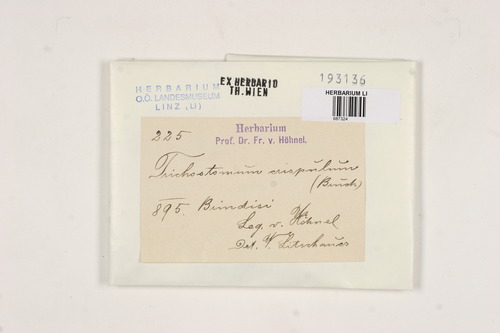 HERBARIUM
O.Ö. LANDESMUSEUM
LINZ (LI)
EX HERBARIO
TH. WIEN
193136
HERBARIUM LI
225
Herbarium
Prof. Dr. Fr. v. Höhnel.
Trichostomum crispulum
(Bruch)
895. Brindisi
Leg. v. Höhnel
Det. V. Litschauer